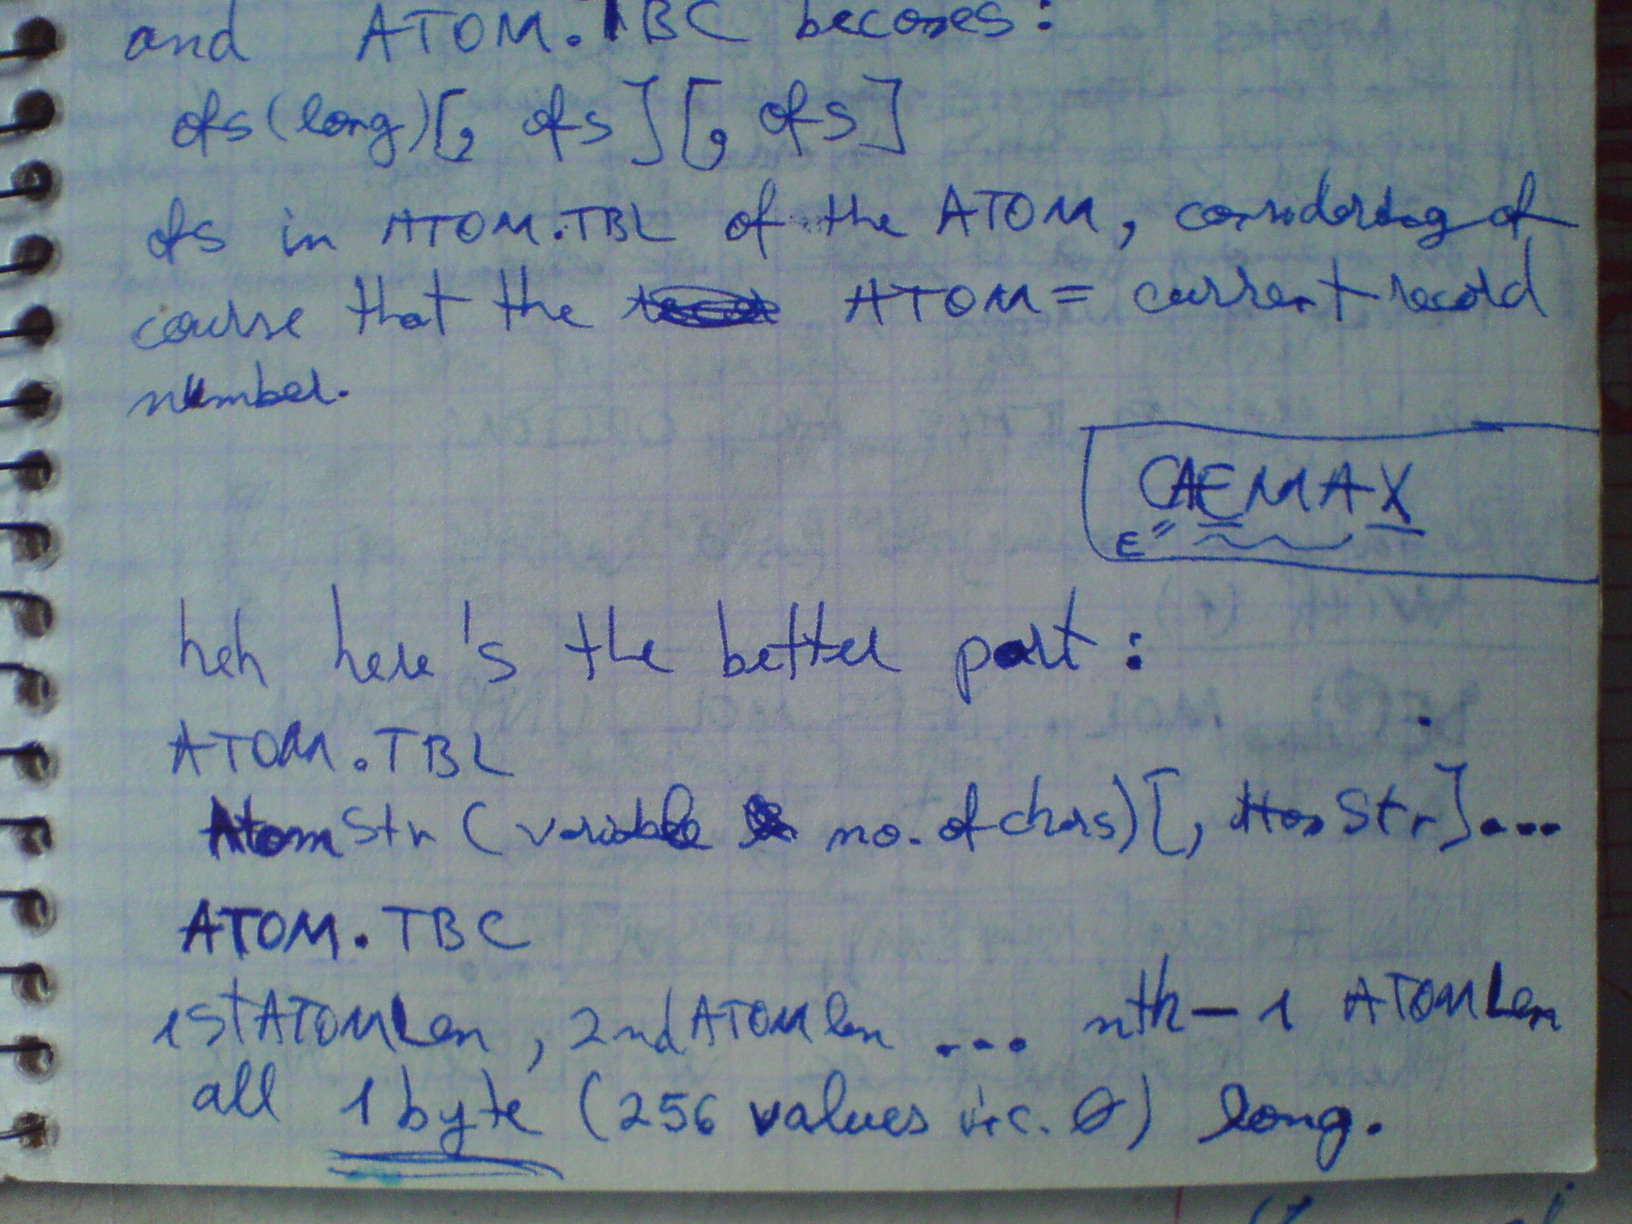 and ATOM.TBC becomes:
ofs(long)[, ofs][, ofs]
ofs in ATOM.TBL of the ATOM, considering of
course that the ATOM = current record
number.
CAEMAX
E
heh here's the better part:
ATOM.TBL
AtomStr (variable no. of chars)[, Str]...
ATOM.TBC
1stATOMLen, 2ndATOMlen ... nth-1 ATOMLen
all 1byte (256 values inc. 0) long.